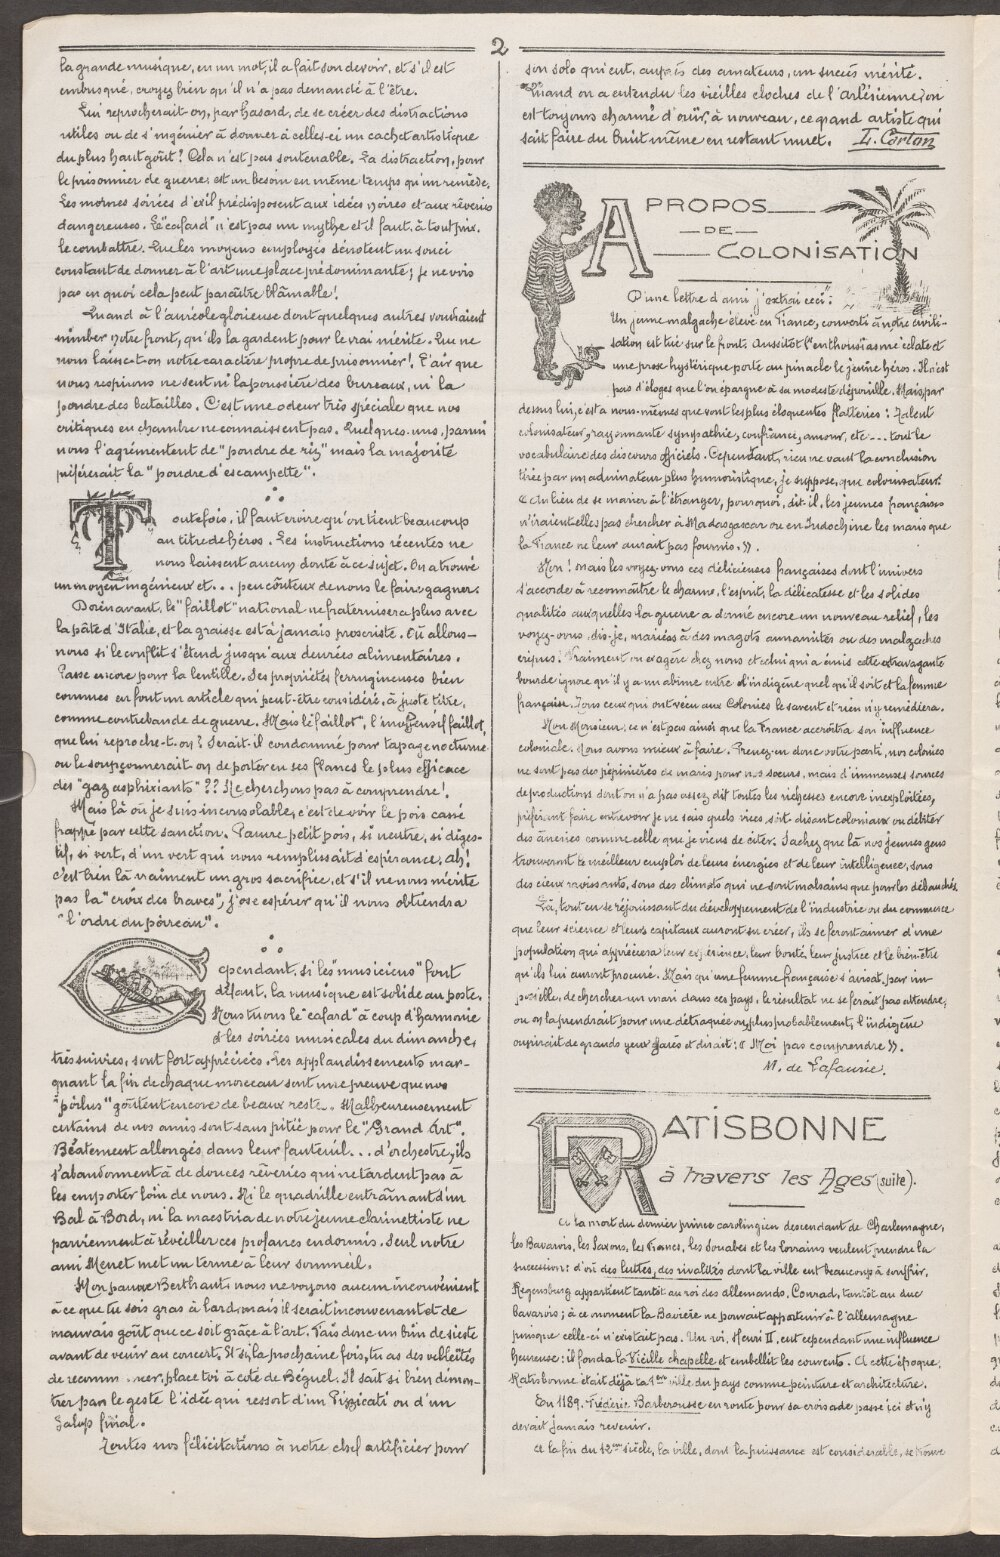 2
la grande musique, en un mot, il a fait son devoir, et s'il est
embusqué, croyez bien qu'il n'a pas demandé à l'être.
Lui reprocherait-on, par hasard, de se créer des distractions
utiles ou de s'ingénier à donner à celles-ci un cachet artistique
du plus haut goût? Cela n'est pas soutenable. La distraction, pour
le prisonnier de guerre, est un besoin en même temps qu'un remède.
Les mornes soirées d'exil prédisposent aux idées noires et aux rêveries
dangereuses. Le "cafard" n'est pas un mythe et il faut, à tout prix,
le combattre. Que les moyens employés dénotent un souci
constant de donner à l'art une place prédominante; je ne vois
pas en quoi cela peut paraître blâmable!
Quand à l'auréole glorieuse dont quelques autres voudraient
nimber notre front, qu'ils la gardent pour le vrai mérite. Que ne
nous laisse-t-on notre caractère propre de prisonnier! L'air que
nous respirons ne sent ni la poussière des bureaux, ni la
poudre des batailles. C'est une odeur très spéciale que nos
critiques en chambre ne connaissent pas. Quelques-uns, parmi
nous l'agrémentent de "poudre de riz" mais la majorité
préférerait la "poudre d'escampette".
Toutefois, il faut croire qu'on tient beaucoup
au titre de héros. Les instructions récentes ne
nous laissent aucun doute à ce sujet. On a trouvé
un moyen ingénieux et... peu coûteux de nous le faire gagner.
Dorénavant, le "faillot" national ne fraternisera plus avec
la pâte d'Italie, et la graisse est à jamais proscriste. Où allons-
nous si le conflit s'étend jusqu'aux denrées alimentaires.
Passe encore pour la lentille. Ses propriétés ferrugineuses bien
connues en font un article qui peut-être considéré, à juste titre,
comme contrebande de guerre. Mais le faillot", l'inoffensif faillot,
que lui reproche-t-on? Serait-il condamné pour tapage nocturne
ou le soupçonnerait-on de porter en ses flancs le plus efficace
des "gaz asphixiants"?? Ne cherchons pas à comprendre!
Mais là où je suis inconsolable, c'est de voir le pois cassé
frappé par cette sanction. Pauvre petit pois, si neutre, si diges-
tif, si vert, d'un vert qui nous remplissait d'espérance, ah!
c'est bien là vraiment un gros sacrifice, et s'il ne nous mérite
pas la "croix des braves", j'ose espérer qu'il nous obtiendra
"l'ordre du poireau".
Cependant, si les "musiciens" font
défaut, la musique est solide au poste.
Nous tuons le "cafard" à coup d'harmonie
et les soirées musicales du dimanche,
très suivies, sont fort appréciées. Les applaudissements mar-
quant la fin de chaque morceau sont une preuve que nos
"poilus" goûtent encore de beaux reste.. Malheureusement
certains de nos amis sont sans pitié pour le "Grand Art".
Béatement allongés dans leur fauteuil... d'orchestre, ils
s'abandonnent à de douces rêveries qui ne tardent pas à
les emporter loin de nous. Ni le quadrille entraînant d'un
Bal à Bord, ni la maestria de notre jeune clarinettiste ne
parviennent à réveiller ces profanes endormis. Seul notre
ami Menet met un terme à leur sommeil.
Mon pauvre Berthaut nous ne voyons aucun inconvénient
à ce que tu sois gras à lard, mais il serait inconvenant et de
mauvais goût que ce soit grâce à l'art. Fais donc un brin de sieste
avant de venir au concert. Et si, la prochaine fois, tu as des velléités
de recomm.. ncer, place toi à côté de Béguel. Il sait si bien démon-
trer par le geste l'idée qui ressort d'un Pizzicati ou d'un
Galop final.
Toutes nos félicitations à notre chef artificier pour
son solo qui eut, auprès des amateurs, un succès mérité.
Quand on a entendu les vieilles cloches de l'Arlésienne, on
est toujours charmé d'ouïr, à nouveau, ce grand artiste qui
sait faire du bruit même en restant muet. L. Carton
A PROPOS
DE
COLONISATION
D'une lettre d'ami j'extrai ceci:
Un jeune malgache élevé en France, converti à notre civili-
sation est tué sur le front. Aussitôt l'enthousiasme éclate et
une prose hystérique porte au pinacle le jeune héros. Il n'est
pas d'éloges que l'on épargne à sa modeste dépouille. Mais, par
dessus lui, c'est à nous-mêmes que vont les plus éloquentes flatteries: Talent
colonisateur, rayonnante sympathie, confiance, amour, etc... tout le
vocabulaire des discours officiels. Cependant, rien ne vaut la conclusion
tirée par un admirateur plus humoristique, je suppose, que colonisateur.
« Au lieu de se marier à l'étranger, pourquoi, dit-il, les jeunes françaises
n'iraient-elles pas chercher à Madagascar ou en Indochine les maris que
la France ne leur aurait pas fournis. ».
Non! mais les voyez-vous ces délicieuses françaises dont l'univers
s'accorde à reconnaître le charme, l'esprit, la délicatesse et les solides
qualités auxquelles la guerre a donné encore un nouveau relief, les
voyez-vous, dis-je, mariées à des magots annamites ou des malgaches
crépus! Vraiment on exagère chez nous et celui qui a émis cette extravagante
bourde ignore qu'il y a un abîme entre l'indigène quel qu'il soit et la femme
française. Tous ceux qui ont vécu aux Colonies le savent et rien n'y remédiera.
Non Monsieur, ce n'est pas ainsi que la France accroîtra son influence
coloniale. Nous avons mieux à faire. Prenez-en donc votre parti, nos colonies
ne sont pas des pépinières de maris pour nos soeurs, mais d'immenses sources
de productions dont on n'a pas assez dit toutes les richesses encore inexploitées,
préférant faire entrevoir je ne sais quels vices soit-disant coloniaux ou débiter
des âneries comme celle que je viens de citer. Sachez que là nos jeunes gens
trouveront le meilleur emploi de leurs énergies et de leur intelligence, sous
des cieux ravissants, sous des climats qui ne sont malsains que pour les débauchés.
Là, tout en se réjouissant du développement de l'industrie ou du commerce
que leur science et leurs capitaux auront su créer, ils se feront aimer d'une
population qui appréciera leur expérience, leur bonté, leur justice et le bien-être
qu'ils lui auront procuré. Mais qu'une femme française s'avisat, par im-
possible, de chercher un mari dans ces pays, le résultat ne se ferait pas attendre;
ou on la prendrait pour une détraquée ou, plus probablement, l'indigène
ouvrirait de grands yeux effarés et dirait: « Moi pas comprendre ».
M. de Lafaurie.
RATISBONNE
à travers les Ages (suite).
A la mort du dernier prince carolingien descendant de Charlemagne,
les Bavarois, les Saxons, les Francs, les Souabes et les lorrains veulent prendre la
succession: d'où des luttes, des rivalités dont la ville eut beaucoup à souffrir.
Regensburg appartient tantôt au roi des allemands, Conrad, tantôt au duc
bavarois; à ce moment la Bavière ne pouvait appartenir à l'allemagne
puisque celle-ci n'existait pas. Un roi, Henri II, eut cependant une influence
heureuse: il fonda la Vieille chapelle et embellit les couvents. A cette époque,
Ratisbonne était déjà la 1ère ville du pays comme peinture et architecture.
En 1189, Frédéric Barberousse en route pour sa croisade passe ici et n'y
devait jamais revenir.
A la fin du 12ème siècle, la ville, dont la puissance est considérable, se trouve